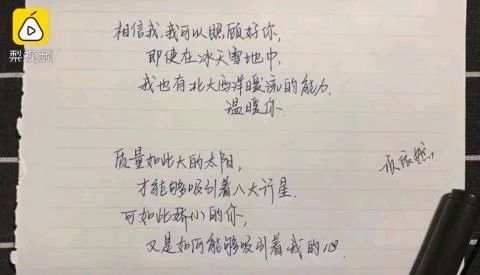 梨视频
相信我,我可以照顾好你,
即使在冰天雪地中,
我也有北大西洋暖流的能力
温暖你
质量如此大的太阳,
才能够吸引着八大行星
可如此娇小的你,
又是如何能够吸引着我的心